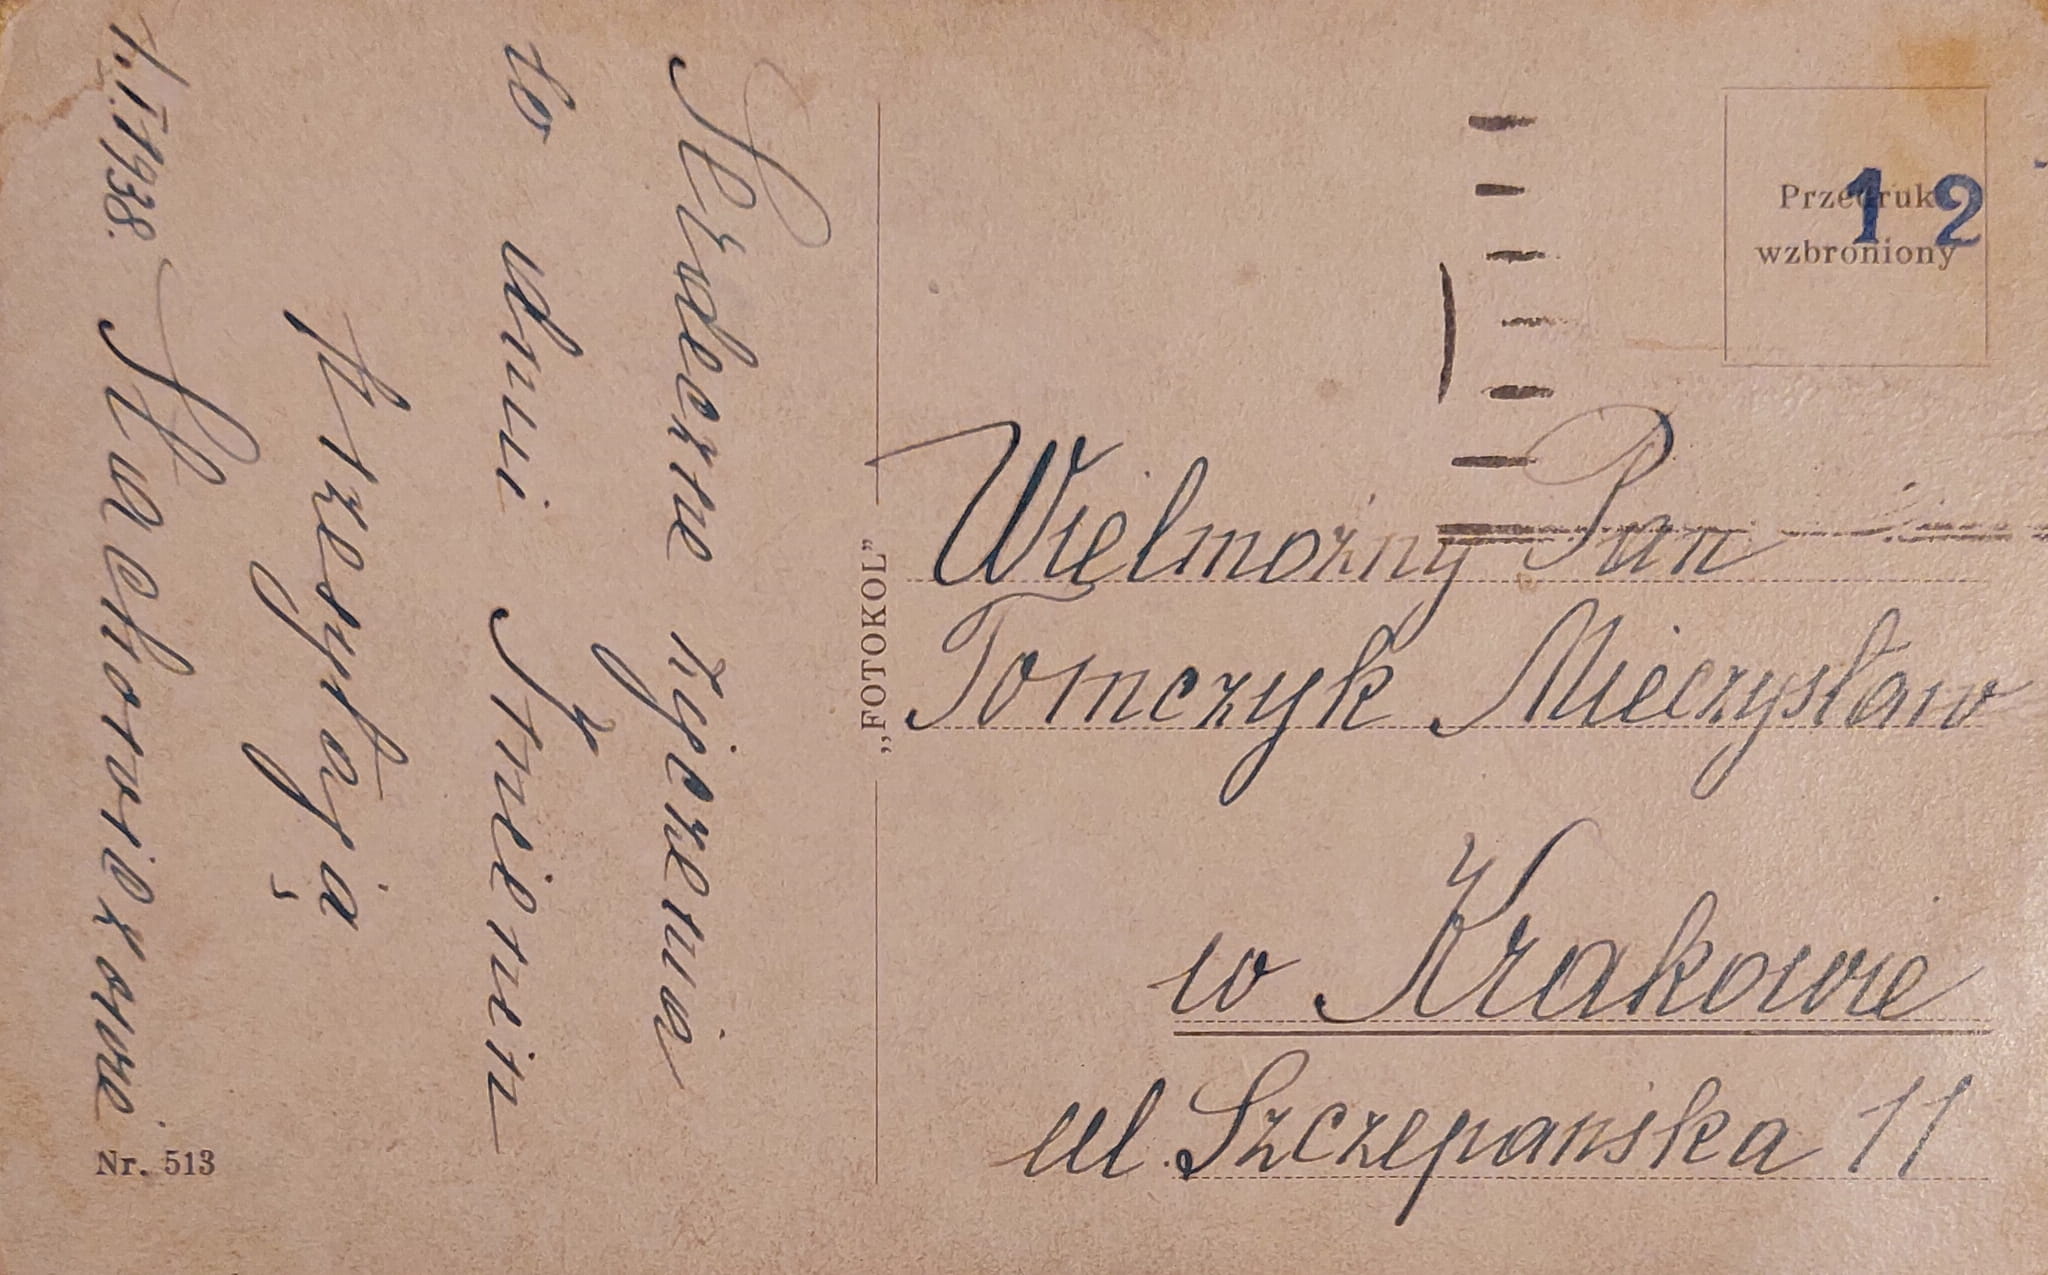 Serdeczne życzenia
w dniu Imienin
przesyłają
1. I 1938.
"FOTOKOL"
Nr. 513
Przedruk
wzbroniony
12
Wielmożny Pan
Tomczyk Mieczysław
w Krakowie
ul. Szczepańska 11